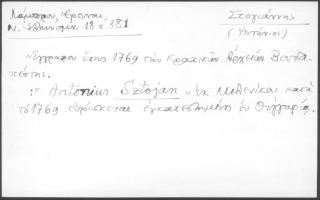 Λάμπρου, Ἔρευναι,
Ν. Ἑλληνομν. 18 σ 381
Στογιάννης
(Ἀντώνιος)
"Ἔγγραφον ἔτους 1769 τῶν Κρατικῶν Ἀρχείων Βουδα-
πέστης.
:" Antonius Sztojan " ἐκ Μελενίκου κατὰ
τὸ 1769 εὑρίσκεται ἐγκατεστημένος ἐν Οὑγγαρίᾳ.